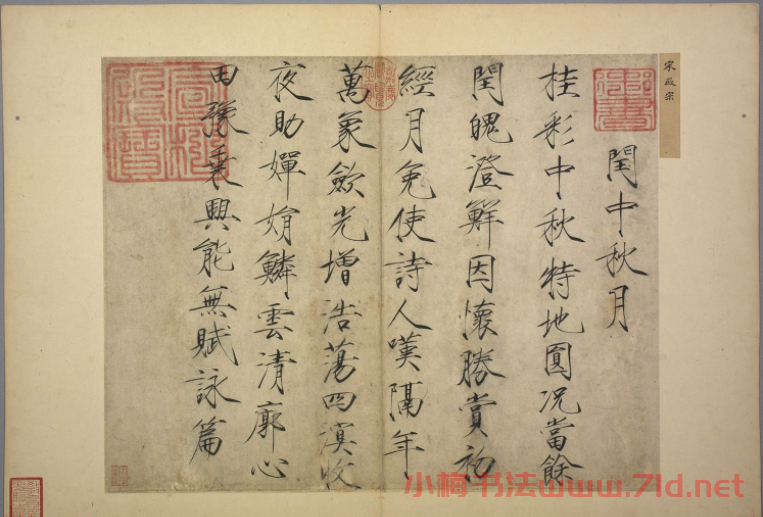 宋徽宗
御書
閏中秋月
桂彩中秋特地圓況當餘
閏魄澄鮮因懷勝賞初
經月免使詩人嘆隔年
萬象歛光增浩蕩四溟收
夜助嬋娟鱗雲清廓心
田豫乘興能無賦詠篇
小楷书法www.7ld.net